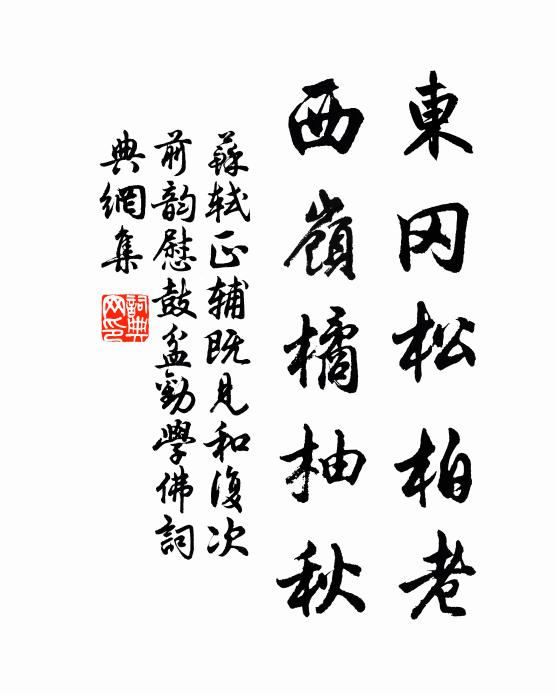 東冈松柏老
西嶺橘柚秋
蘇軾正辅既見和復次
前韵慰鼓盆勸學佛詞
典網集
詞典
网印